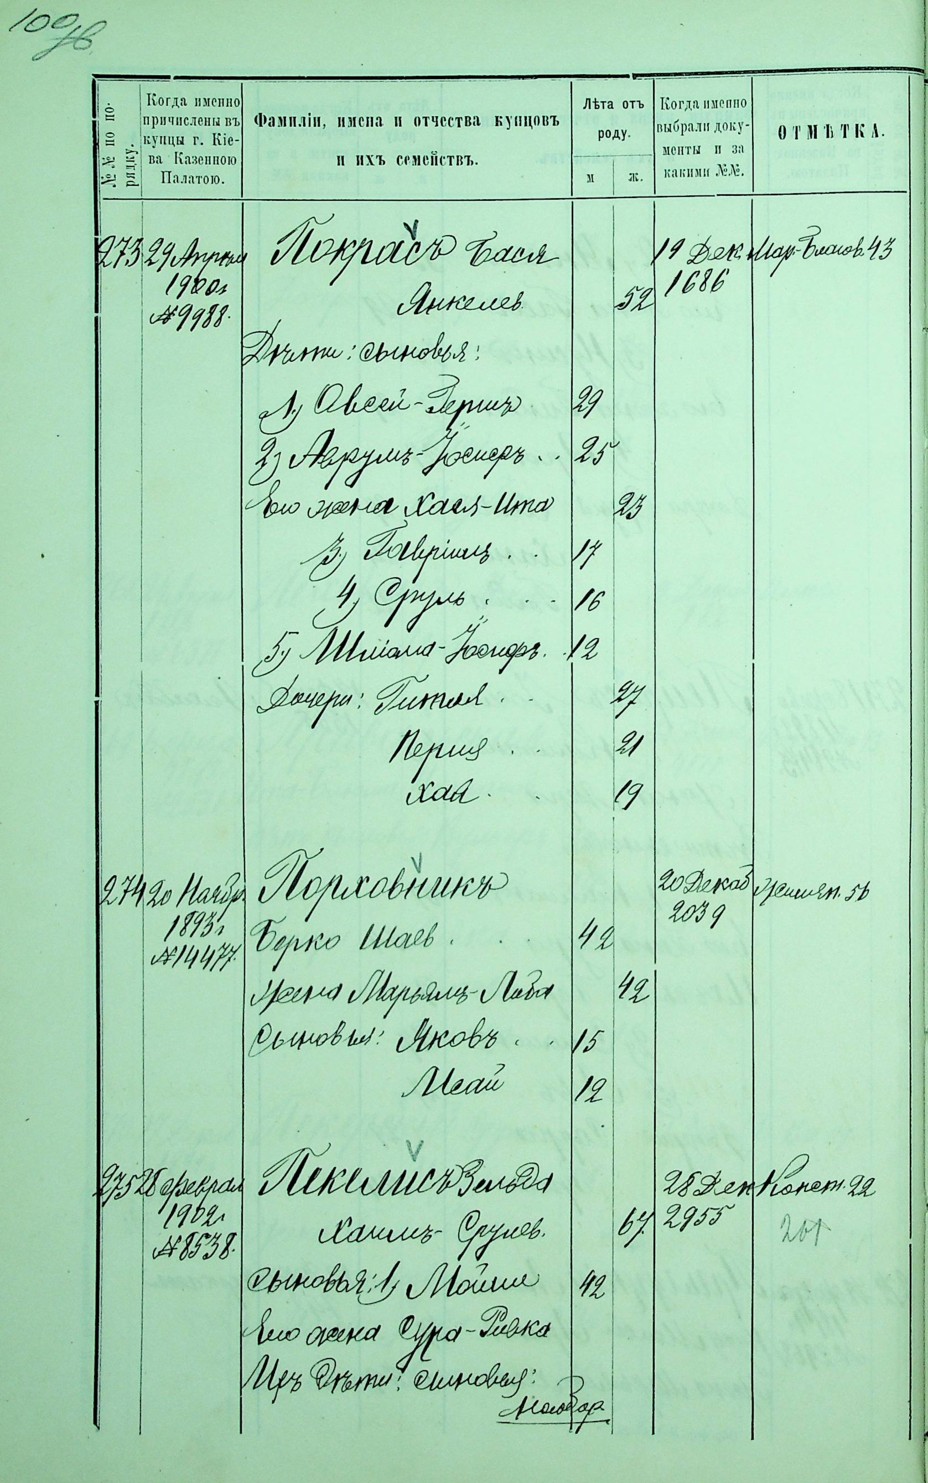 100 об.
№№ по по-
рядку.
Когда именно
причислены въ
купцы г. Кіе-
ва Казенною
Палатою.
Фамиліи, имена и отчества купцовъ
и ихъ семействъ.
Лѣта отъ
роду.
м
ж.
Когда именно
выбрали доку-
менты и за
какими №№.
ОТМѢТКА.
273 29 Апрѣля Покрасъ Бася 19 Дек. Мар.-Благов. 43
1900 г. Янкелев. 52 1686
№ 9988.
Дѣти: сыновья:
1) Овсей-Гершъ 29
2) Аврумъ-Іосифъ . . 25
Его жена Хася-Ита 23
3) Гавріилъ . . 17
4) Сруль . . . 16
5) Шлiома-Іосифъ . . 12
Дочери: Гитля . . 27
Перля . . 21
Хая . . 19
274 20 Ноябр. Порховникъ 20 Декаб. Жилянск. 56
1893 г. Берко Шаев. . . 42 2039
№ 14477.
жена Марьямъ-Либа 42
сыновья: Яковъ . . 15
Исай 12
275 26 Феврал. Пекелисъ Зельда 28 Дек. Конст. 22
1902 г. Хаимъ-Срулев. 67. 2955
№ 8538.
сыновья: 1) Мойше 42
Его жена Сура-Ривка
Ихъ дѣти: сыновья: